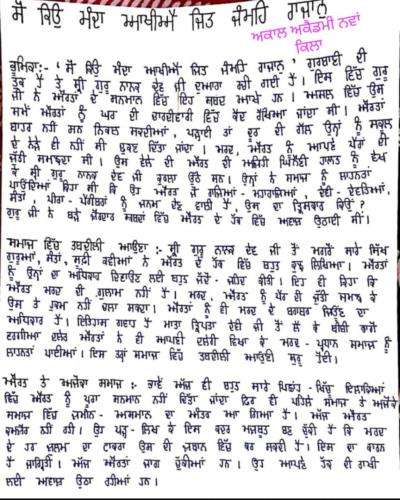 ਸੋ ਕਿਉ ਮੰਦਾ ਆਖੀਐ ਜਿਤ ਜੰਮਹਿ ਰਾਜਾਨ
ਅਕਾਲ ਅਕੈਡਮੀ ਨਵਾਂ
ਕਿਲਾ
ਭੂਮਿਕਾ:- 'ਸੋ ਕਿਉ ਮੰਦਾ ਆਖੀਐ ਜਿਤ ਜੰਮਹਿ ਰਾਜਾਨ' ਗੁਰਬਾਣੀ ਦੀ
ਤੁਕ ਹੈ ਤੇ ਸ੍ਰੀ ਗੁਰੂ ਨਾਨਕ ਦੇਵ ਜੀ ਦੁਆਰਾ ਰਚੀ ਗਈ ਹੈ। ਇਸ ਵਿੱਚ ਗੁਰੂ
ਜੀ ਨੇ ਔਰਤਾਂ ਦੇ ਸਨਮਾਨ ਵਿੱਚ ਇਹ ਸ਼ਬਦ ਆਖੇ ਹਨ। ਅਸਲ ਵਿੱਚ ਉਸ
ਸਮੇਂ ਔਰਤਾਂ ਨੂੰ ਘਰ ਦੀ ਚਾਰਦੀਵਾਰੀ ਵਿੱਚ ਕੈਦ ਰੱਖਿਆ ਜਾਂਦਾ ਸੀ। ਔਰਤਾਂ
ਬਾਹਰ ਨਹੀਂ ਸਨ ਨਿਕਲ ਸਕਦੀਆਂ, ਪੜ੍ਹਾਈ ਤਾਂ ਦੂਰ ਦੀ ਗੱਲ ਉਨਾਂ ਨੂੰ ਸਕੂਲ
ਦੇ ਨੇੜੇ ਵੀ ਨਹੀਂ ਸੀ ਢੁਕਣ ਦਿੱਤਾ ਜਾਂਦਾ। ਮਰਦ, ਔਰਤ ਨੂੰ ਆਪਣੇ ਪੈਰਾਂ ਦੀ
ਜੁੱਤੀ ਸਮਝਦਾ ਸੀ। ਉਸ ਵੇਲੇ ਦੀ ਔਰਤ ਦੀ ਅਜਿਹੀ ਘਿਨੌਣੀ ਹਾਲਤ ਨੂੰ ਦੇਖ
ਕੇ ਸ੍ਰੀ ਗੁਰੂ ਨਾਨਕ ਦੇਵ ਜੀ ਕੁਰਲਾ ਉਠੇ ਸਨ। ਉਨਾਂ ਨੇ ਸਮਾਜ ਨੂੰ ਲਾਹਨਤਾਂ
ਪਾਉਂਦਿਆਂ ਕਿਹਾ ਸੀ ਕਿ ਉਹ ਔਰਤ ਜੋ ਰਾਜਿਆਂ-ਮਹਾਰਾਜਿਆਂ, ਦੇਵੀ-ਦੇਵਤਿਆਂ,
ਸੰਤਾਂ, ਪੀਰਾਂ-ਪੈਗੰਬਰਾਂ ਨੂੰ ਜਨਮ ਦੇਣ ਵਾਲੀ ਹੈ, ਉਸ ਦਾ ਤ੍ਰਿਸਕਾਰ ਕਿਉਂ?
ਗੁਰੂ ਜੀ ਨੇ ਬੜੇ ਜ਼ੋਰਦਾਰ ਸ਼ਬਦਾਂ ਵਿੱਚ ਔਰਤ ਦੇ ਹੱਕ ਵਿੱਚ ਅਵਾਜ਼ ਉਠਾਈ ਸੀ।
ਸਮਾਜ ਵਿੱਚ ਤਬਦੀਲੀ ਆਉਣਾ:- ਸ੍ਰੀ ਗੁਰੂ ਨਾਨਕ ਦੇਵ ਜੀ ਤੋਂ ਮਗਰੋਂ ਸਾਰੇ ਸਿੱਖ
ਗੁਰੂਆਂ, ਸੰਤਾਂ, ਸੂਫ਼ੀ ਕਵੀਆਂ ਨੇ ਔਰਤ ਦੇ ਹੱਕ ਵਿੱਚ ਬਹੁਤ ਕੁਝ ਲਿਖਿਆ। ਔਰਤਾਂ
ਨੂੰ ਉਨਾਂ ਦਾ ਅਧਿਕਾਰ ਦਿਵਾਉਣ ਲਈ ਬਹੁਤ ਜੱਦੋ-ਜਹਿਦ ਕੀਤੀ। ਇਹ ਵੀ ਕਿਹਾ ਕਿ
ਔਰਤ ਮਰਦ ਦੀ ਗੁਲਾਮ ਨਹੀਂ ਹੈ। ਮਰਦ, ਔਰਤ ਨੂੰ ਪੈਰ ਦੀ ਜੁੱਤੀ ਸਮਝ ਕੇ
ਉਸ ਤੇ ਹੁਕਮ ਨਹੀਂ ਚਲਾ ਸਕਦਾ। ਔਰਤਾਂ ਨੂੰ ਵੀ ਮਰਦ ਦੇ ਬਰਾਬਰ ਜਿਊਣ ਦਾ
ਅਧਿਕਾਰ ਹੈ। ਇਤਿਹਾਸ ਗਵਾਹ ਹੈ ਮਾਤਾ ਤ੍ਰਿਪਤਾ ਦੇਵੀ ਜੀ ਤੋਂ ਲੈ ਕੇ ਬੀਬੀ ਭਾਗੋ
ਵਰਗੀਆਂ ਦਲੇਰ ਔਰਤਾਂ ਨੇ ਵੀ ਆਪਣੀ ਦਲੇਰੀ ਵਿਖਾ ਕੇ ਮਰਦ-ਪ੍ਰਧਾਨ ਸਮਾਜ ਨੂੰ
ਲਾਹਨਤਾਂ ਪਾਈਆਂ। ਇਸ ਤਰ੍ਹਾਂ ਸਮਾਜ ਵਿੱਚ ਤਬਦੀਲੀ ਆਉਣੀ ਸ਼ੁਰੂ ਹੋਈ।
ਔਰਤ ਤੇ ਅਜੋਕਾ ਸਮਾਜ:- ਭਾਵੇਂ ਅੱਜ ਵੀ ਬਹੁਤ ਸਾਰੇ ਪਿਛੜੇ-ਖਿੱਤੇ ਇਲਾਕਿਆਂ
ਵਿੱਚ ਔਰਤ ਨੂੰ ਪੂਰਾ ਸਨਮਾਨ ਨਹੀਂ ਦਿੱਤਾ ਜਾਂਦਾ ਫਿਰ ਵੀ ਪਹਿਲੇ ਸਮਾਜ ਤੇ ਅਜੋਕੇ
ਸਮਾਜ ਵਿੱਚ ਜ਼ਮੀਨ-ਅਸਮਾਨ ਦਾ ਅੰਤਰ ਆ ਗਿਆ ਹੈ। ਅੱਜ ਔਰਤ
ਕਮਜ਼ੋਰ ਨਹੀਂ ਰਹੀ। ਉਹ ਪੜ੍ਹ-ਲਿਖ ਕੇ ਇਸ ਕਦਰ ਮਜ਼ਬੂਤ ਬਣ ਚੁੱਕੀ ਹੈ ਕਿ ਮਰਦ
ਦੇ ਹਰ ਜ਼ੁਲਮ ਦਾ ਟਾਕਰਾ ਉਸ ਦੀ ਜ਼ਬਾਨ ਵਿੱਚ ਕਰ ਸਕਦੀ ਹੈ। ਇਸ ਦਾ ਕਾਰਨ
ਹੈ ਜਾਗ੍ਰਿਤੀ। ਅੱਜ ਔਰਤਾਂ ਜਾਗ ਚੁੱਕੀਆਂ ਹਨ। ਉਹ ਆਪਣੇ ਹੱਕ ਦੀ ਰਾਖੀ
ਲਈ ਅਵਾਜ਼ ਉਠਾ ਰਹੀਆਂ ਹਨ।